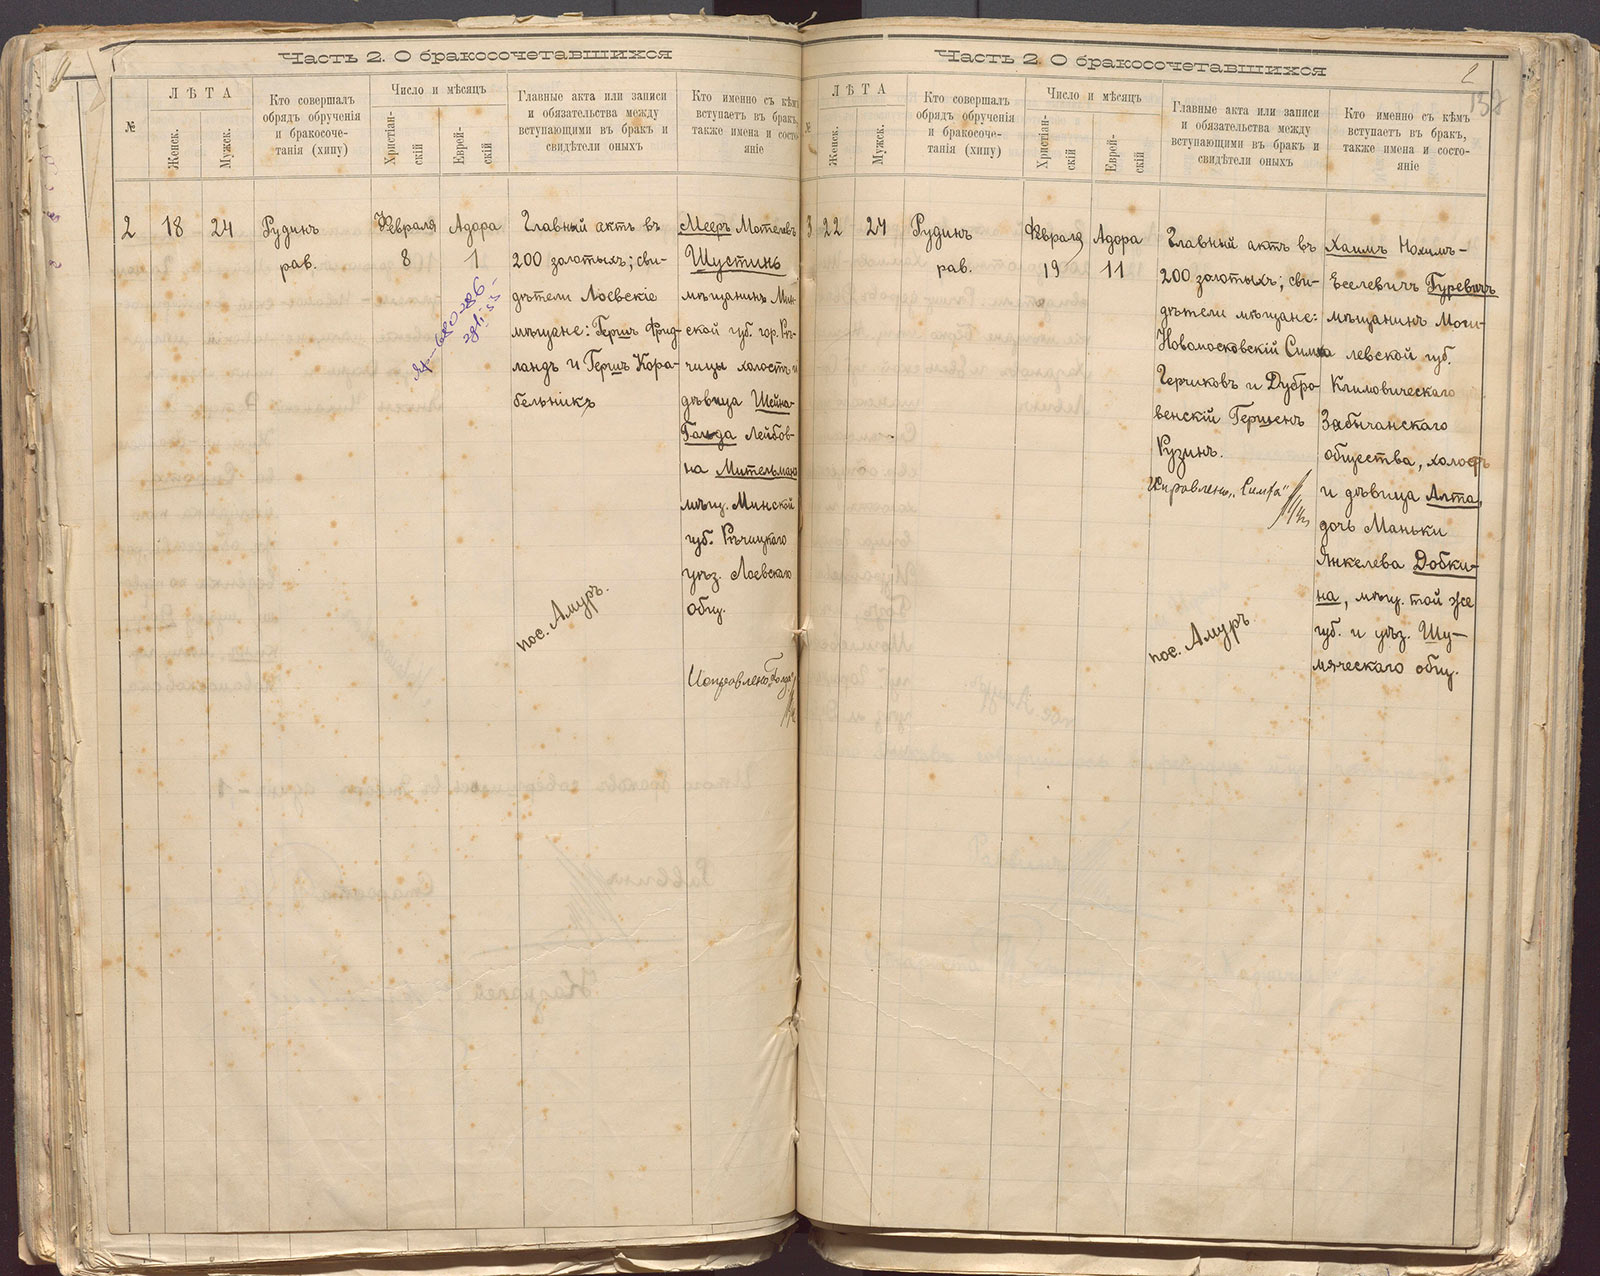 Часть 2. О бракосочетавшихся
№
ЛѢТА
Женск.
Мужск.
Кто совершалъ
обрядъ обрученія
и бракосоче-
танія (хипу)
Число и мѣсяцъ
Христіан-
скій
Еврей-
скій
Главные акта или записи
и обязательства между
вступающими въ бракъ и
свидѣтели оныхъ
Кто именно съ кѣмъ
вступаетъ въ бракъ,
также имена и состо-
яніе
2
18
24
Рудинъ
рав.
Февраля
8
Адора
1
Главный актъ въ
200 золотыхъ; сви-
дѣтели Лоевскіе
мѣщане: Гершъ Фрид-
ландъ и Гершъ Кора-
бельникъ
пос. Амуръ.
Мееръ Мотелевъ
Шустинъ
мѣщанинъ Мин-
ской губ. гор. Рѣ-
чицы холостъ и
дѣвица Шейна-
Гольда Лейбов-
на Мительмана
мѣщ. Минской
губ. Рѣчицкаго
уѣз. Лоевскаго
общ.
Исправлено „Гольда“
Часть 2. О бракосочетавшихся
2
158
№
ЛѢТА
Женск.
Мужск.
Кто совершалъ
обрядъ обрученія
и бракосоче-
танія (хипу)
Число и мѣсяцъ
Христіан-
скій
Еврей-
скій
Главные акта или записи
и обязательства между
вступающими въ бракъ и
свидѣтели оныхъ
Кто именно съ кѣмъ
вступаетъ въ бракъ,
также имена и состо-
яніе
3
22
24
Рудинъ
рав.
Февраля
19
Адора
11
Главный актъ въ
200 золотыхъ; сви-
дѣтели мѣщане:
Новомосковскій Симха
Герчиковъ и Дубро-
венскій Гершенъ
Рузинъ.
Исправлено „Симха“
пос. Амуръ
Хаимъ Нохимъ-
Еселевичъ Гуревичъ
мѣщанинъ Моги-
левской губ.
Климовическаго
Забычанскаго
общества, холостъ
и дѣвица Алта,
дочь Маньки
Янкелева Добки-
на, мѣщ. той же
губ. и уѣз. Шу-
мяческаго общ.